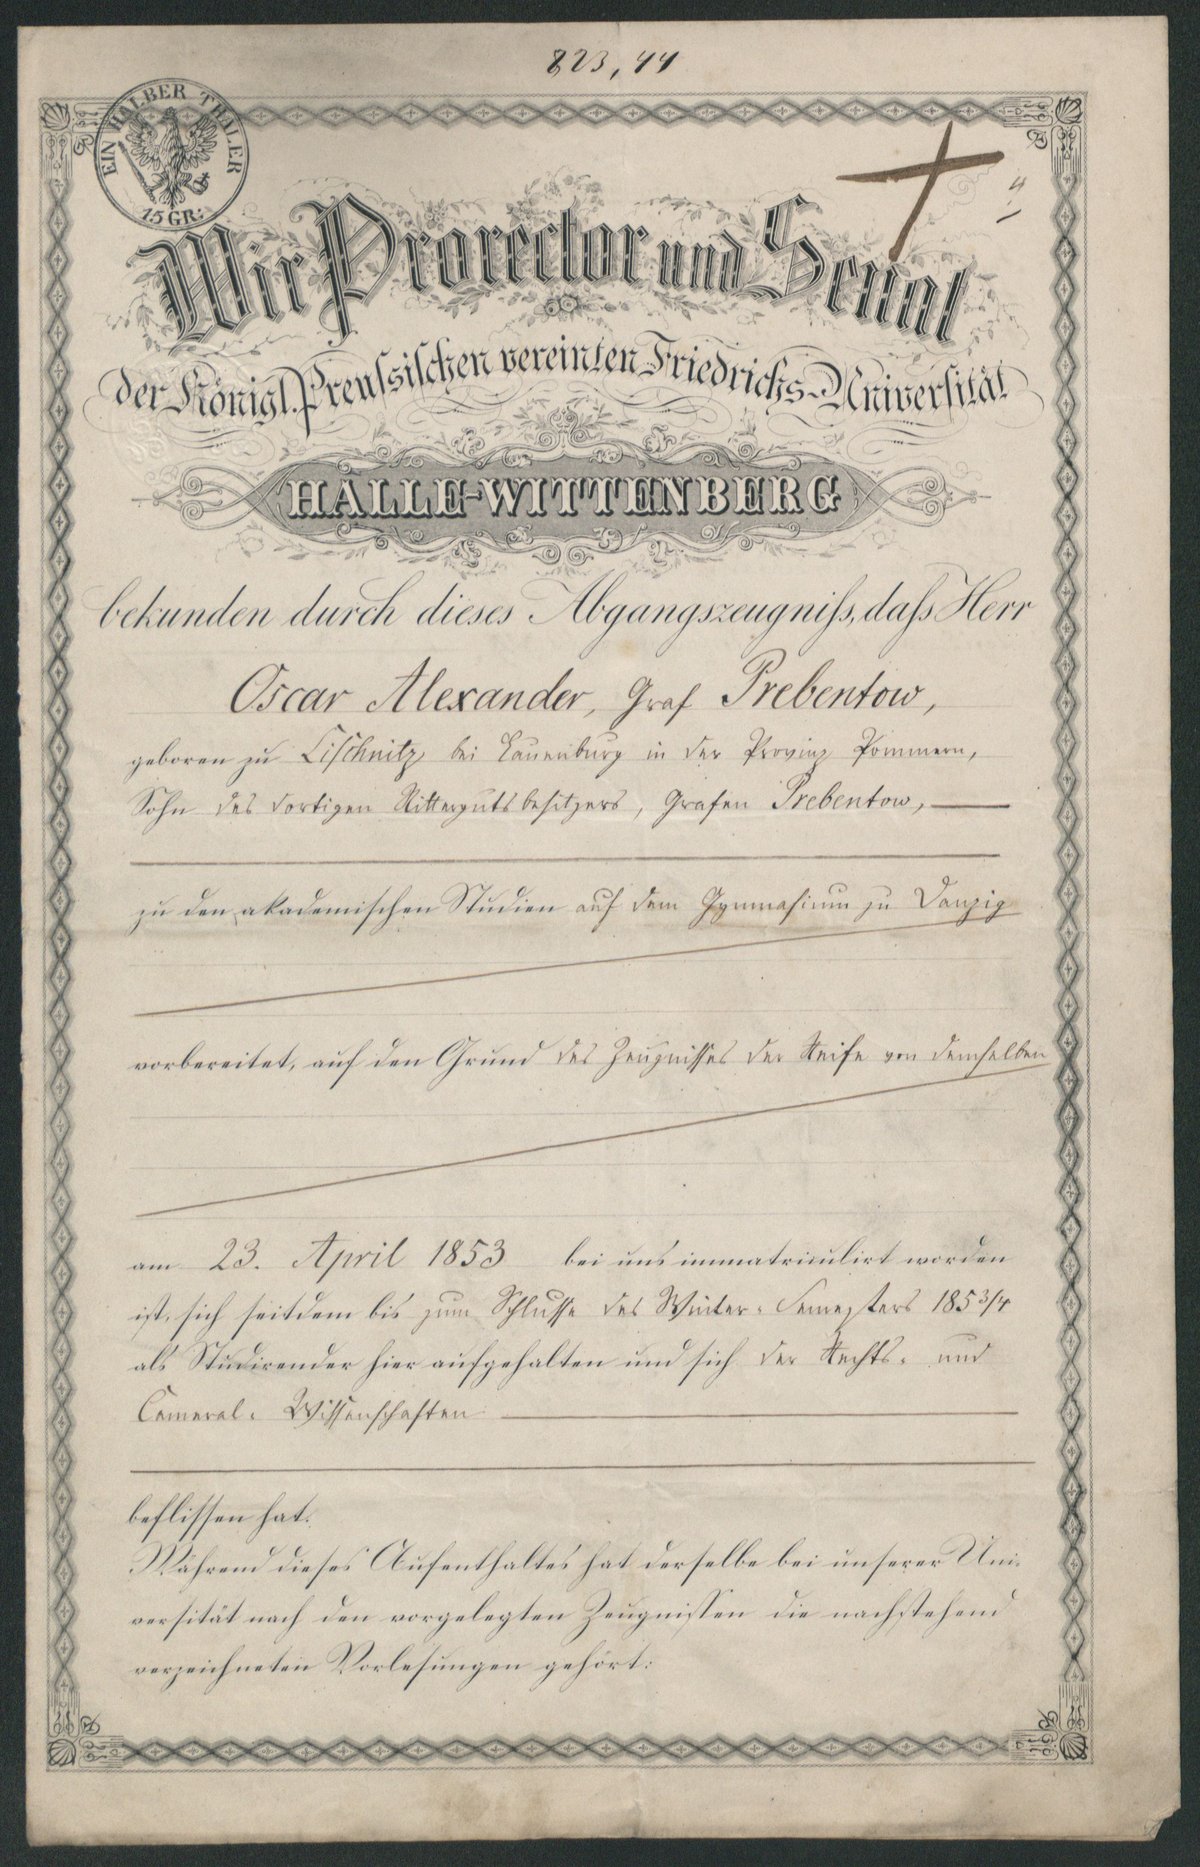 823,44
EIN HALBER THALER
15 GR:
Wir Prorector und Senat
der Königl. Preussischen vereinten Friedrichs-Universität
HALLE-WITTENBERG
bekunden durch dieses Abgangszeugniss, dass Herr
Oscar Alexander, Graf Prebentow,
geboren zu Lischnitz bei Lauenburg in der Provinz Pommern,
Sohn des dortigen Rittergutsbesitzers, Grafen Prebentow,
zu den akademischen Studien auf dem Gymnasium zu Danzig
vorbereitet, auf den Grund des Zeugnisses der Reife von demselben
am 23. April 1853 bei uns immatriculirt worden
ist, sich seitdem bis zum Schlusse des Winter-Semesters 1853/4
als Studirender hier aufgehalten und sich der Rechts- und
Cameral-Wissenschaften
beflissen hat.
Während dieses Aufenthaltes hat derselbe bei unserer Uni-
versität nach den vorgelegten Zeugnissen die nachstehend
verzeichneten Vorlesungen gehört: